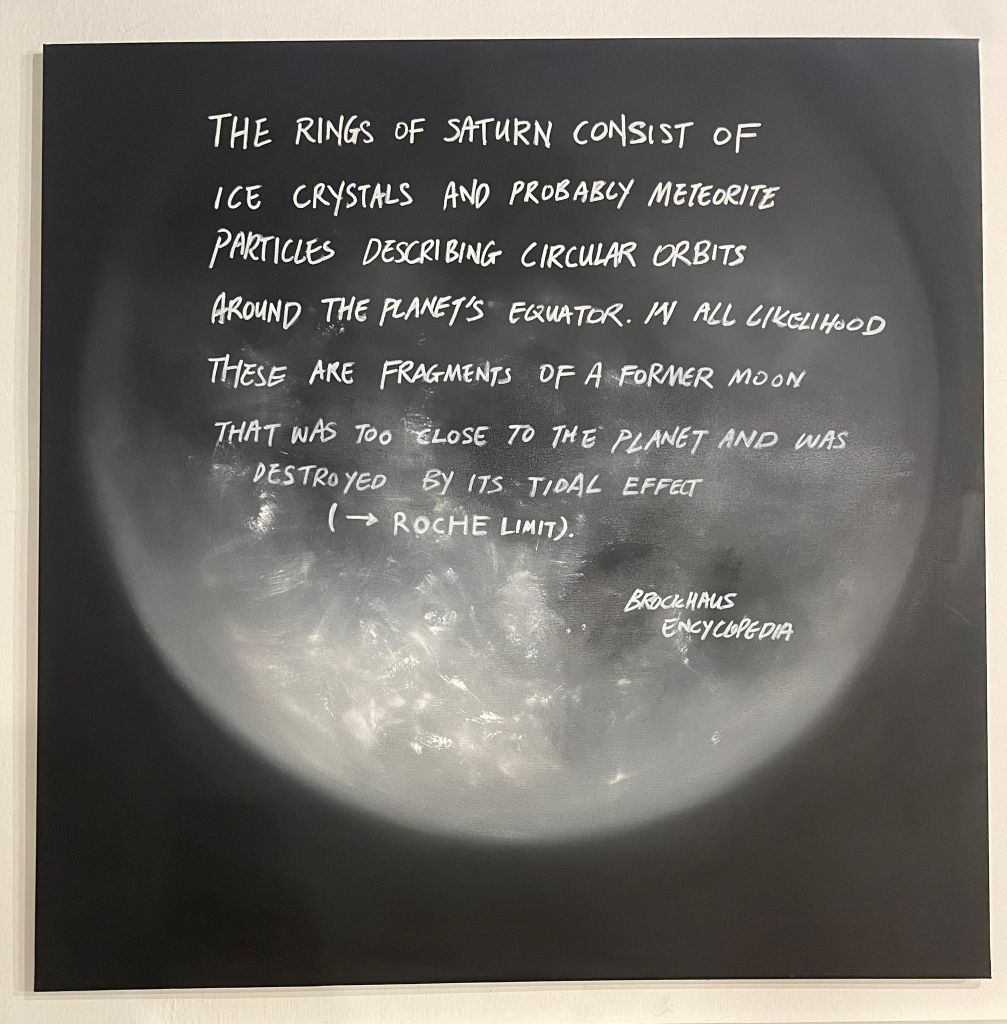 THE RINGS OF SATURN CONSIST OF
ICE CRYSTALS AND PROBABLY METEORITE
PARTICLES DESCRIBING CIRCULAR ORBITS
AROUND THE PLANET'S EQUATOR. IN ALL LIKELIHOOD
THESE ARE FRAGMENTS OF A FORMER MOON
THAT WAS TOO CLOSE TO THE PLANET AND WAS
DESTROYED BY ITS TIDAL EFFECT
(→ ROCHE LIMIT).
BROCKHAUS
ENCYCLOPEDIA